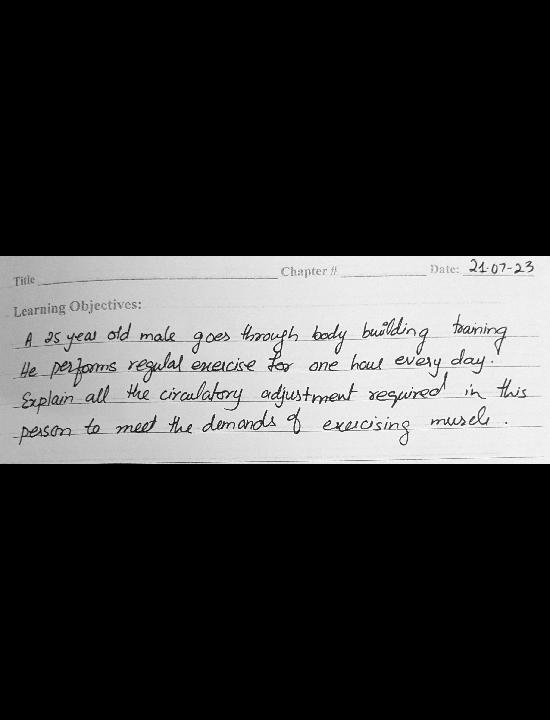 Title Chapter # Date: 21-07-23
Learning Objectives:
A 25 year old male goes through body building training
He performs regular exercise for one hour every day.
Explain all the circulatory adjustment required in this
person to meet the demands of exercising muscle.